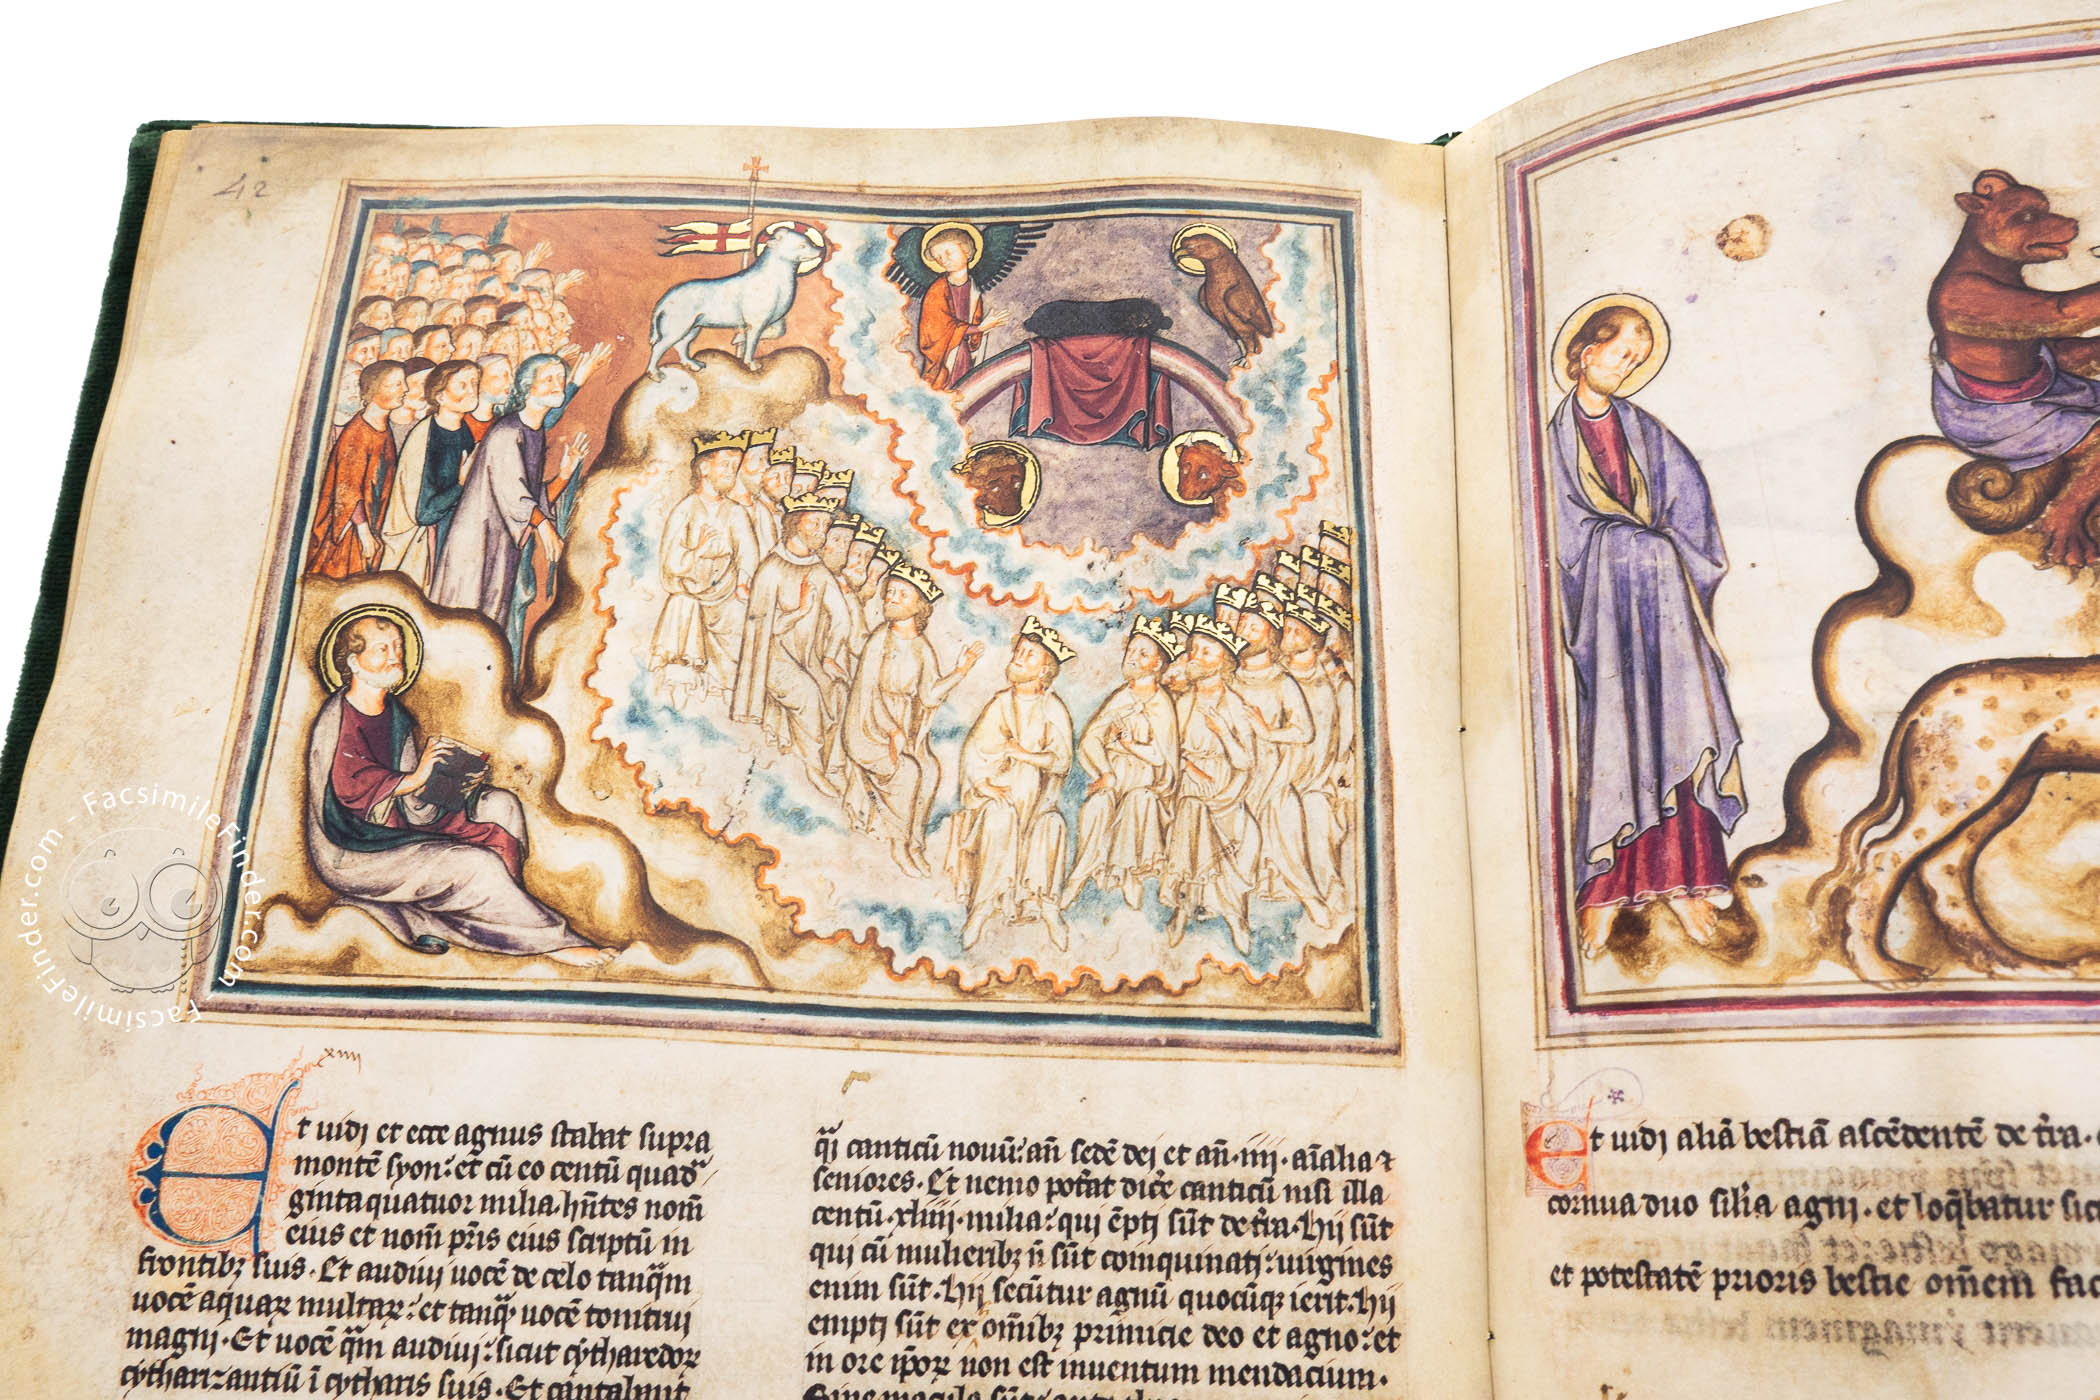 42
xiiii
Et uidi et ecce agnus stabat supra
montē syon: et cū eo centū quadͬ
ginta quatuor milia. hn̄tes nom̄
eius et nom̄ pr̄is eius scriptū in
frontibꝫ suis. Et audiui uocē de celo tanq̄m
uocē aquaꝝ multaꝝ: et tanq̄ uocē tonitrui
magni. Et uocē quā audiui: sicut cytharedoꝝ
cytharizantiū ī cytharis suis. Et cantabant
q̄i canticū nouū: an̄ sedē dei et an̄ .iiii. aīalia ⁊
seniores. Et nemo pot̄at dic̄e canticū nisi illa
centū .xliiii. milia: qui ēpti sūt de tr̄a. Hii sūt
qui cū mulieribꝫ n̄ sūt coinquinati: uirgines
enim sūt. Hii secūtur agnū quocūqꝫ ierit. Hii
empti sūt ex om̄ibꝫ primicie deo et agno: et
in ore ip̄oꝝ non est inuentum mendacium.
Et uidi aliā bestiā ascēdentē de tr̄a.
cornua duo sil̄ia agni. et loq̄batur sic
et potestatē prioris bestie om̄em fac
FacsimileFinder.com - FacsimileFinder.com - FacsimileFinder.com